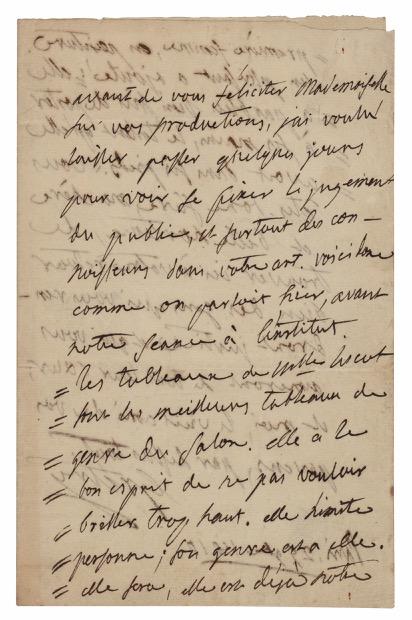 avant de vous féliciter Mademoiselle
sur vos productions, j'ai voulu
laisser passer quelques jours
pour voir se fixer le jugement
du public, et surtout des con-
noisseurs dans votre art. voici donc
comme on parloit hier, avant
notre séance à l'institut
= les tableaux de Mlle Lescot
= sont les meilleurs tableaux de
= genre du Salon. elle a le
= bon esprit de ne pas vouloir
= briller trop haut. elle n'imite
= personne; son genre est a elle.
= elle sera, elle est déjà notre